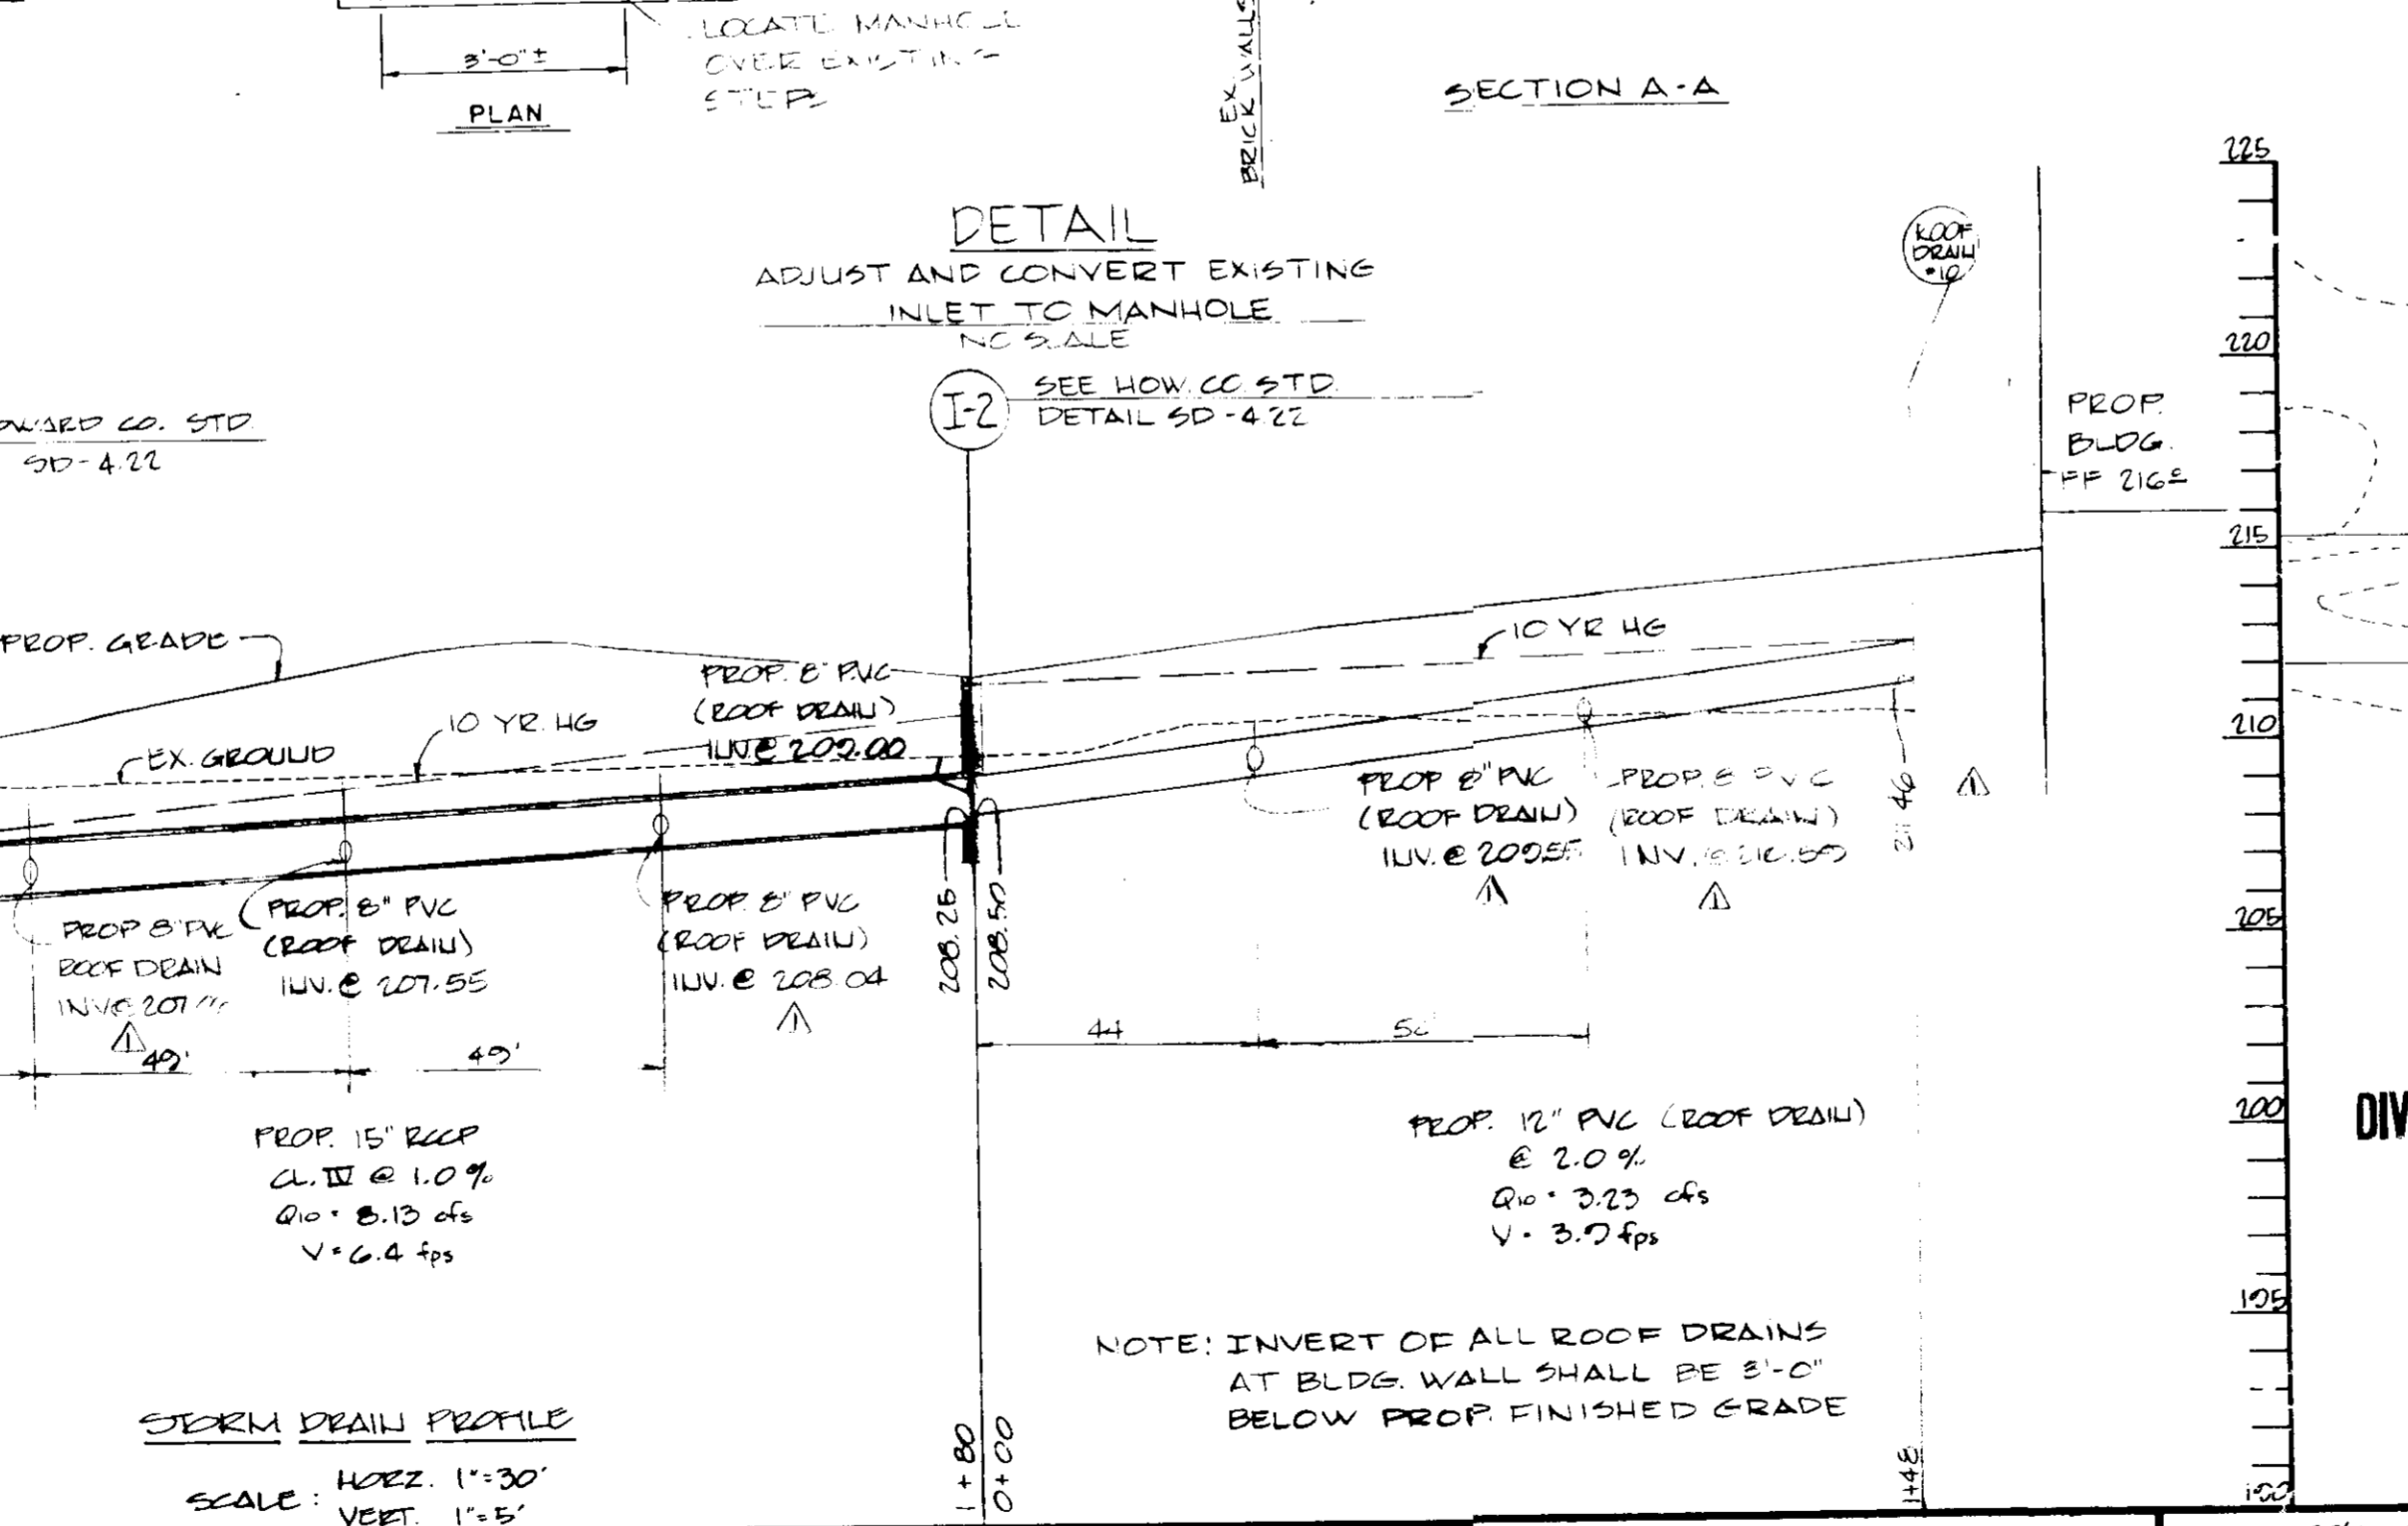 3'-0"±
PLAN
LOCATE MANHOLE
OVER EXISTING
STEPS
EX.
BRICK WALLS
SECTION A-A
DETAIL
ADJUST AND CONVERT EXISTING
INLET TO MANHOLE
NO SCALE
I-2
SEE HOW. CO. STD.
DETAIL SD-4.22
CO. STD.
SD-4.22
ROOF
DRAIN
PROP.
BLDG.
FF 216
225
220
215
210
205
200
195
190
PROP. GRADE
EX. GROUND
10 YR. HG
PROP. 8" PVC
(ROOF DRAIN)
INV. @ 209.00
10 YR HG
PROP 8" PVC
(ROOF DRAIN)
INV. @ 209.55
1
PROP. 8" PVC
(ROOF DRAIN)
INV. @
1
1
PROP 8" PVC
ROOF DRAIN
INV @ 207
1
PROP. 8" PVC
(ROOF DRAIN)
INV. @ 207.55
PROP. 8" PVC
(ROOF DRAIN)
INV. @ 208.04
1
208.25
208.50
49'
49'
44
PROP. 15" RCCP
CL. IV @ 1.0%
Q10 = 8.13 cfs
V = 6.4 fps
PROP. 12" PVC (ROOF DRAIN)
@ 2.0%
Q10 = 3.23 cfs
V = 3.9 fps
NOTE: INVERT OF ALL ROOF DRAINS
AT BLDG. WALL SHALL BE 3'-0"
BELOW PROP. FINISHED GRADE
STORM DRAIN PROFILE
SCALE: HORZ. 1"=30'
VERT. 1"=5'
1+80
0+00
1+48
DIV